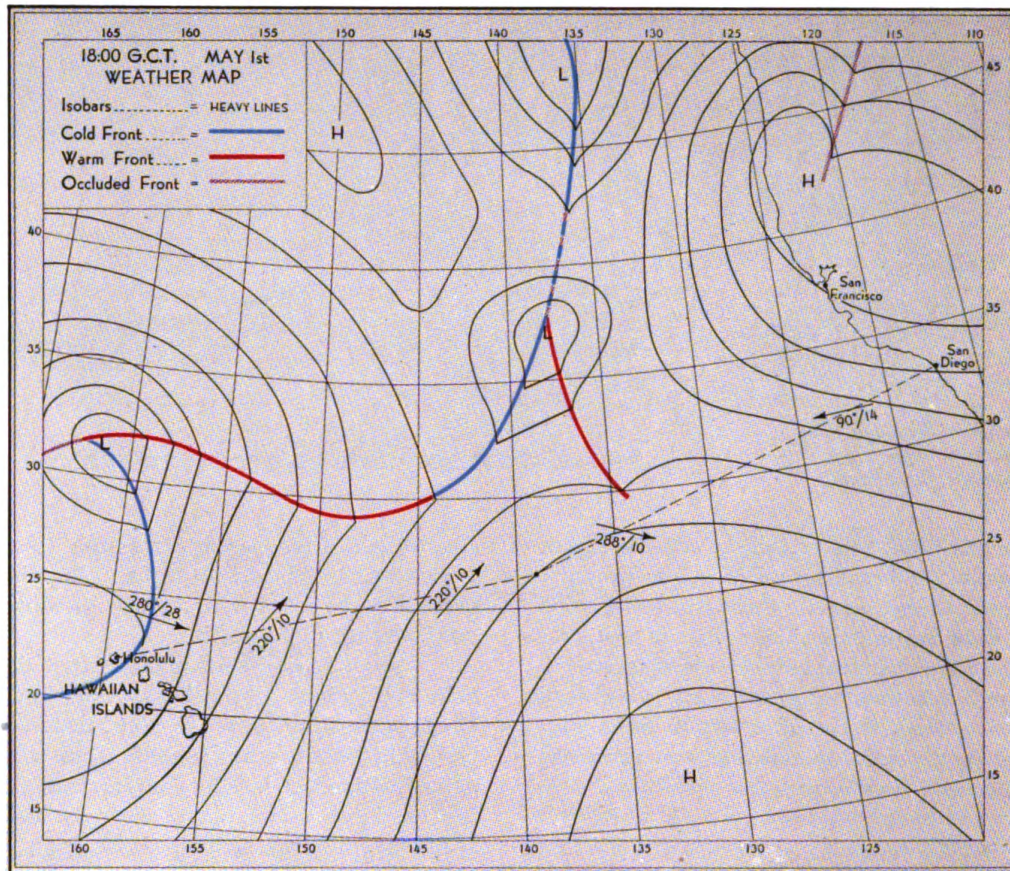 165 160 155 150 145 140 135 130 125 120 115 110
18:00 G.C.T. MAY 1st
WEATHER MAP
Isobars = HEAVY LINES
Cold Front = 
Warm Front = 
Occluded Front = 
H
L
45
H
40
40
San
Francisco
35
L
35
San
Diego
90°/14
30
L
30
288°/10
25
25
220°/10
280°/28
220°/10
Honolulu
20
HAWAIIAN
ISLANDS
20
H
15
15
160 155 150 145 140 135 130 125